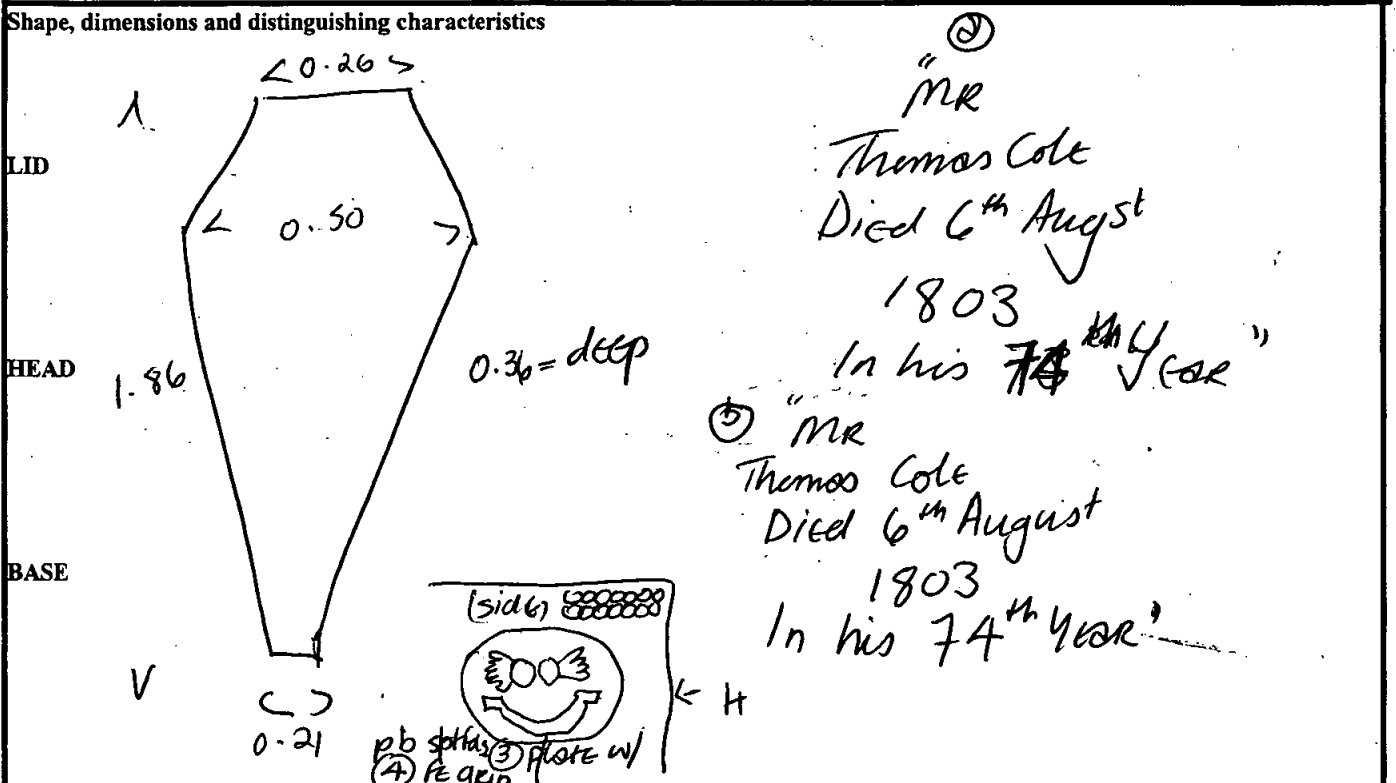 Shape, dimensions and distinguishing characteristics
< 0.26 >
LID
< 0.50 >
HEAD
1.86
0.36 = dEEp
BASE
0.21
(side)
← H
③ plate w/
④ FE grip
②
"MR
Thomas Cole
Died 6th Augst
1803
In his 74th YEAR"
⑤ "MR
Thomas Cole
Died 6th August
1803
In his 74th YEAR"